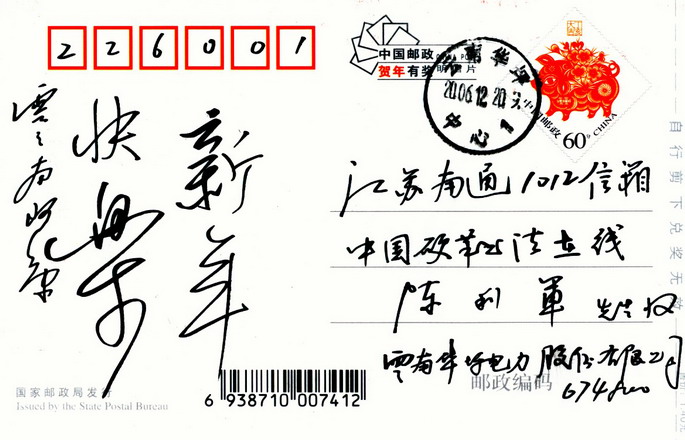 226001
中国邮政
贺年有奖明信片
云南华坪
2006.12.20
中心1
中国邮政
60分 CHINA
新年
快乐
江苏南通1012信箱
中国硬笔书法在线
陈利军 先生收
云南华坪电力股份有限公司
邮政编码
674800
自行剪下兑奖无效
国家邮政局发行
Issued by the State Postal Bureau
6 938710 007412